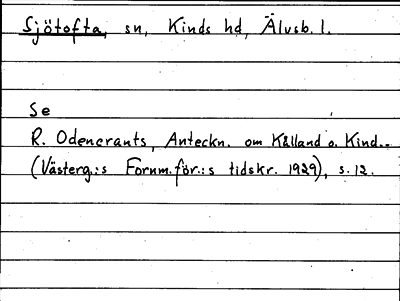 Sjötofta, sn, Kinds hd, Älvsb. l.
Se
R. Odencrants, Anteckn. om Kålland o. Kind..
(Västerg.:s Fornm.för.:s tidskr. 1929), s. 12.